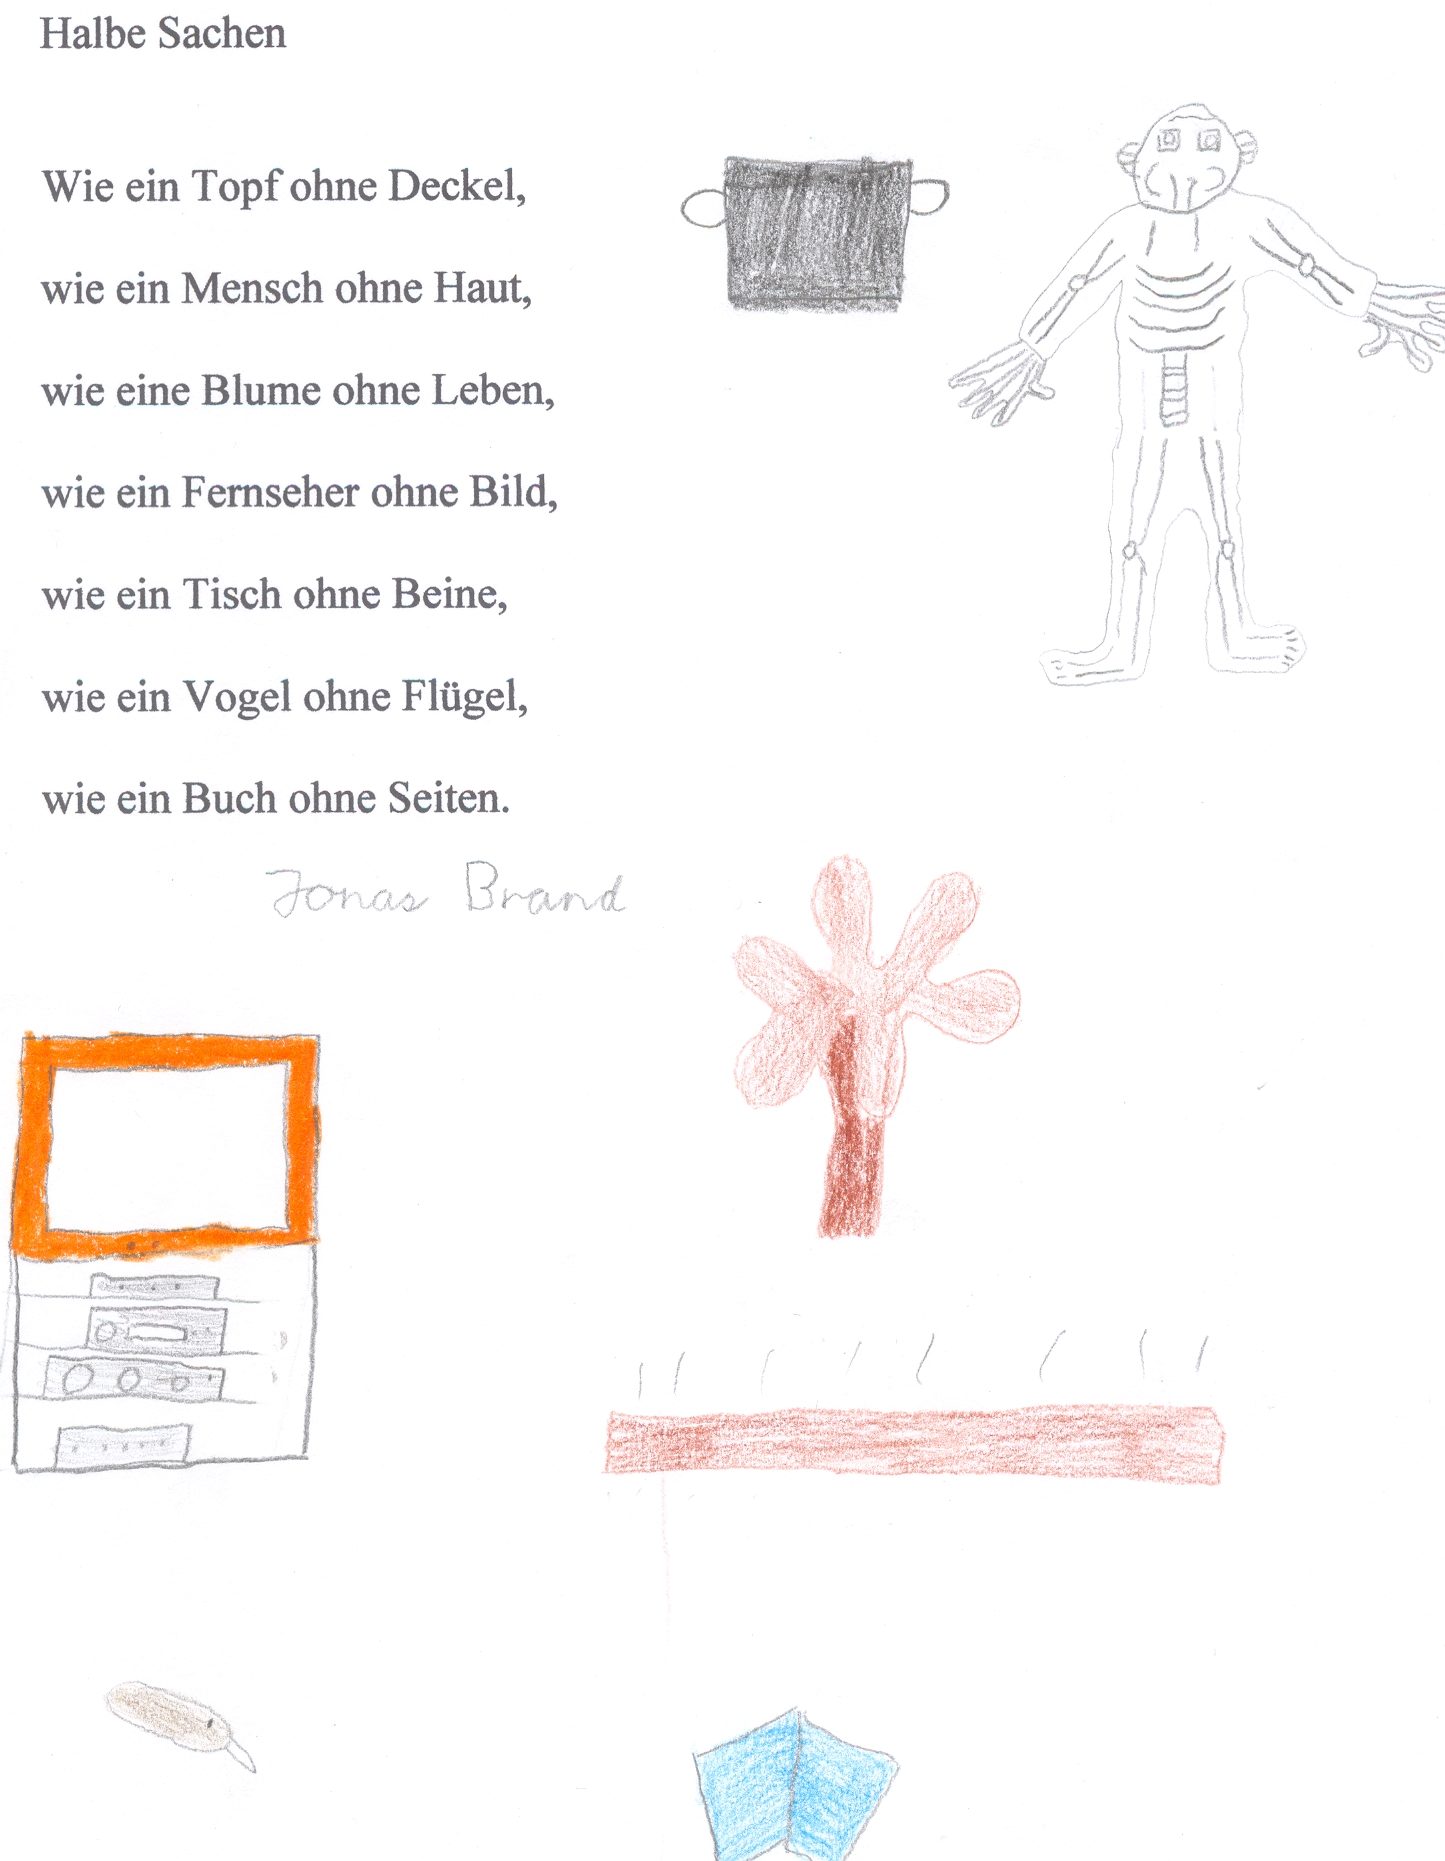 Halbe Sachen
Wie ein Topf ohne Deckel,
wie ein Mensch ohne Haut,
wie eine Blume ohne Leben,
wie ein Fernseher ohne Bild,
wie ein Tisch ohne Beine,
wie ein Vogel ohne Flügel,
wie ein Buch ohne Seiten.
Jonas Brand